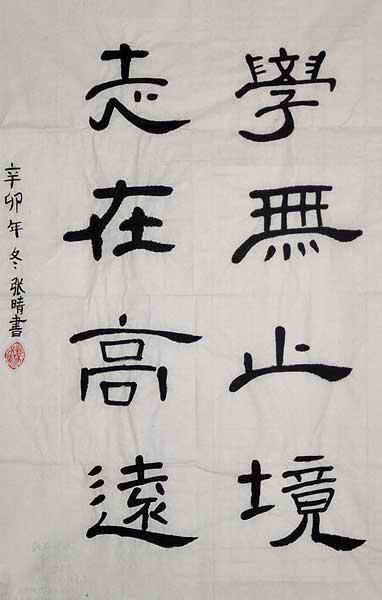 學無止境
志在高遠
辛卯年冬張晴書